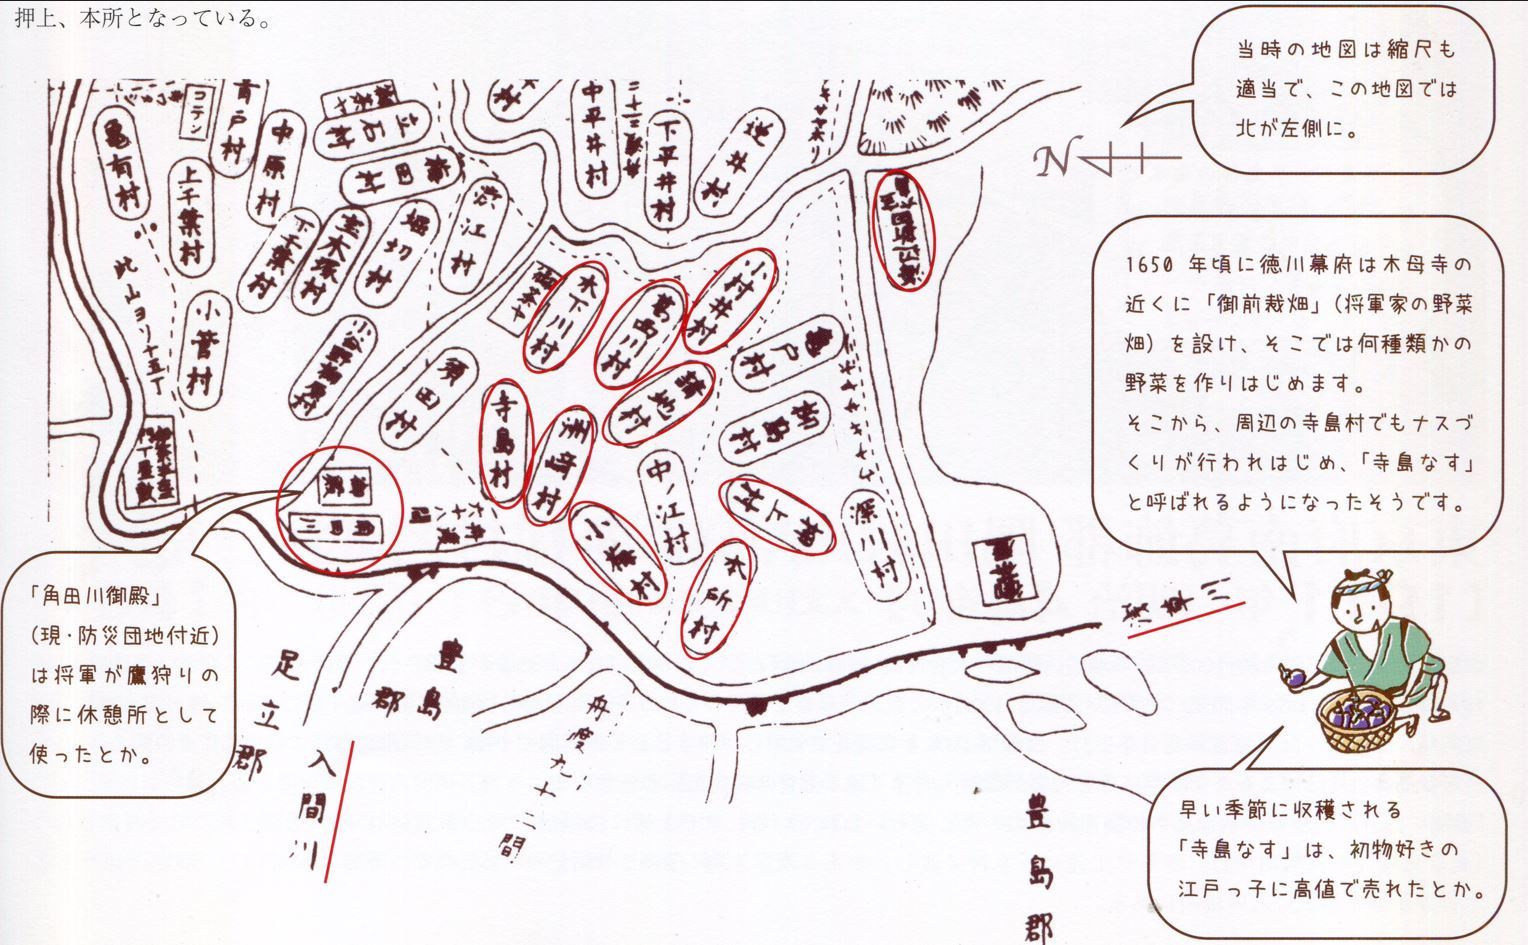 押上、本所となっている。
当時の地図は縮尺も
適当で、この地図では
北が左側に。
N
1650 年頃に徳川幕府は木母寺の
近くに「御前栽畑」(将軍家の野菜
畑)を設け、そこでは何種類かの
野菜を作りはじめます。
そこから、周辺の寺島村でもナスづ
くりが行われはじめ、「寺島なす」
と呼ばれるようになったそうです。
「角田川御殿」
(現・防災団地付近)
は将軍が鷹狩りの
際に休憩所として
使ったとか。
早い季節に収穫される
「寺島なす」は、初物好きの
江戸っ子に高値で売れたとか。
亀有村
コテン
青戸村
中原村
上千葉村
下千葉村
宝木塚村
堀切村
渋江村
小菅村
須田村
中平井村
下平井村
逆井村
木下川村
葛西川村
小村井村
亀戸村
柳島村
寺島村
洲崎村
請地村
中ノ江村
押上村
深川村
小梅村
本所村
此山ヨリ十五丁
足立郡
豊島郡
入間川
舟渡九十二間
豊島郡